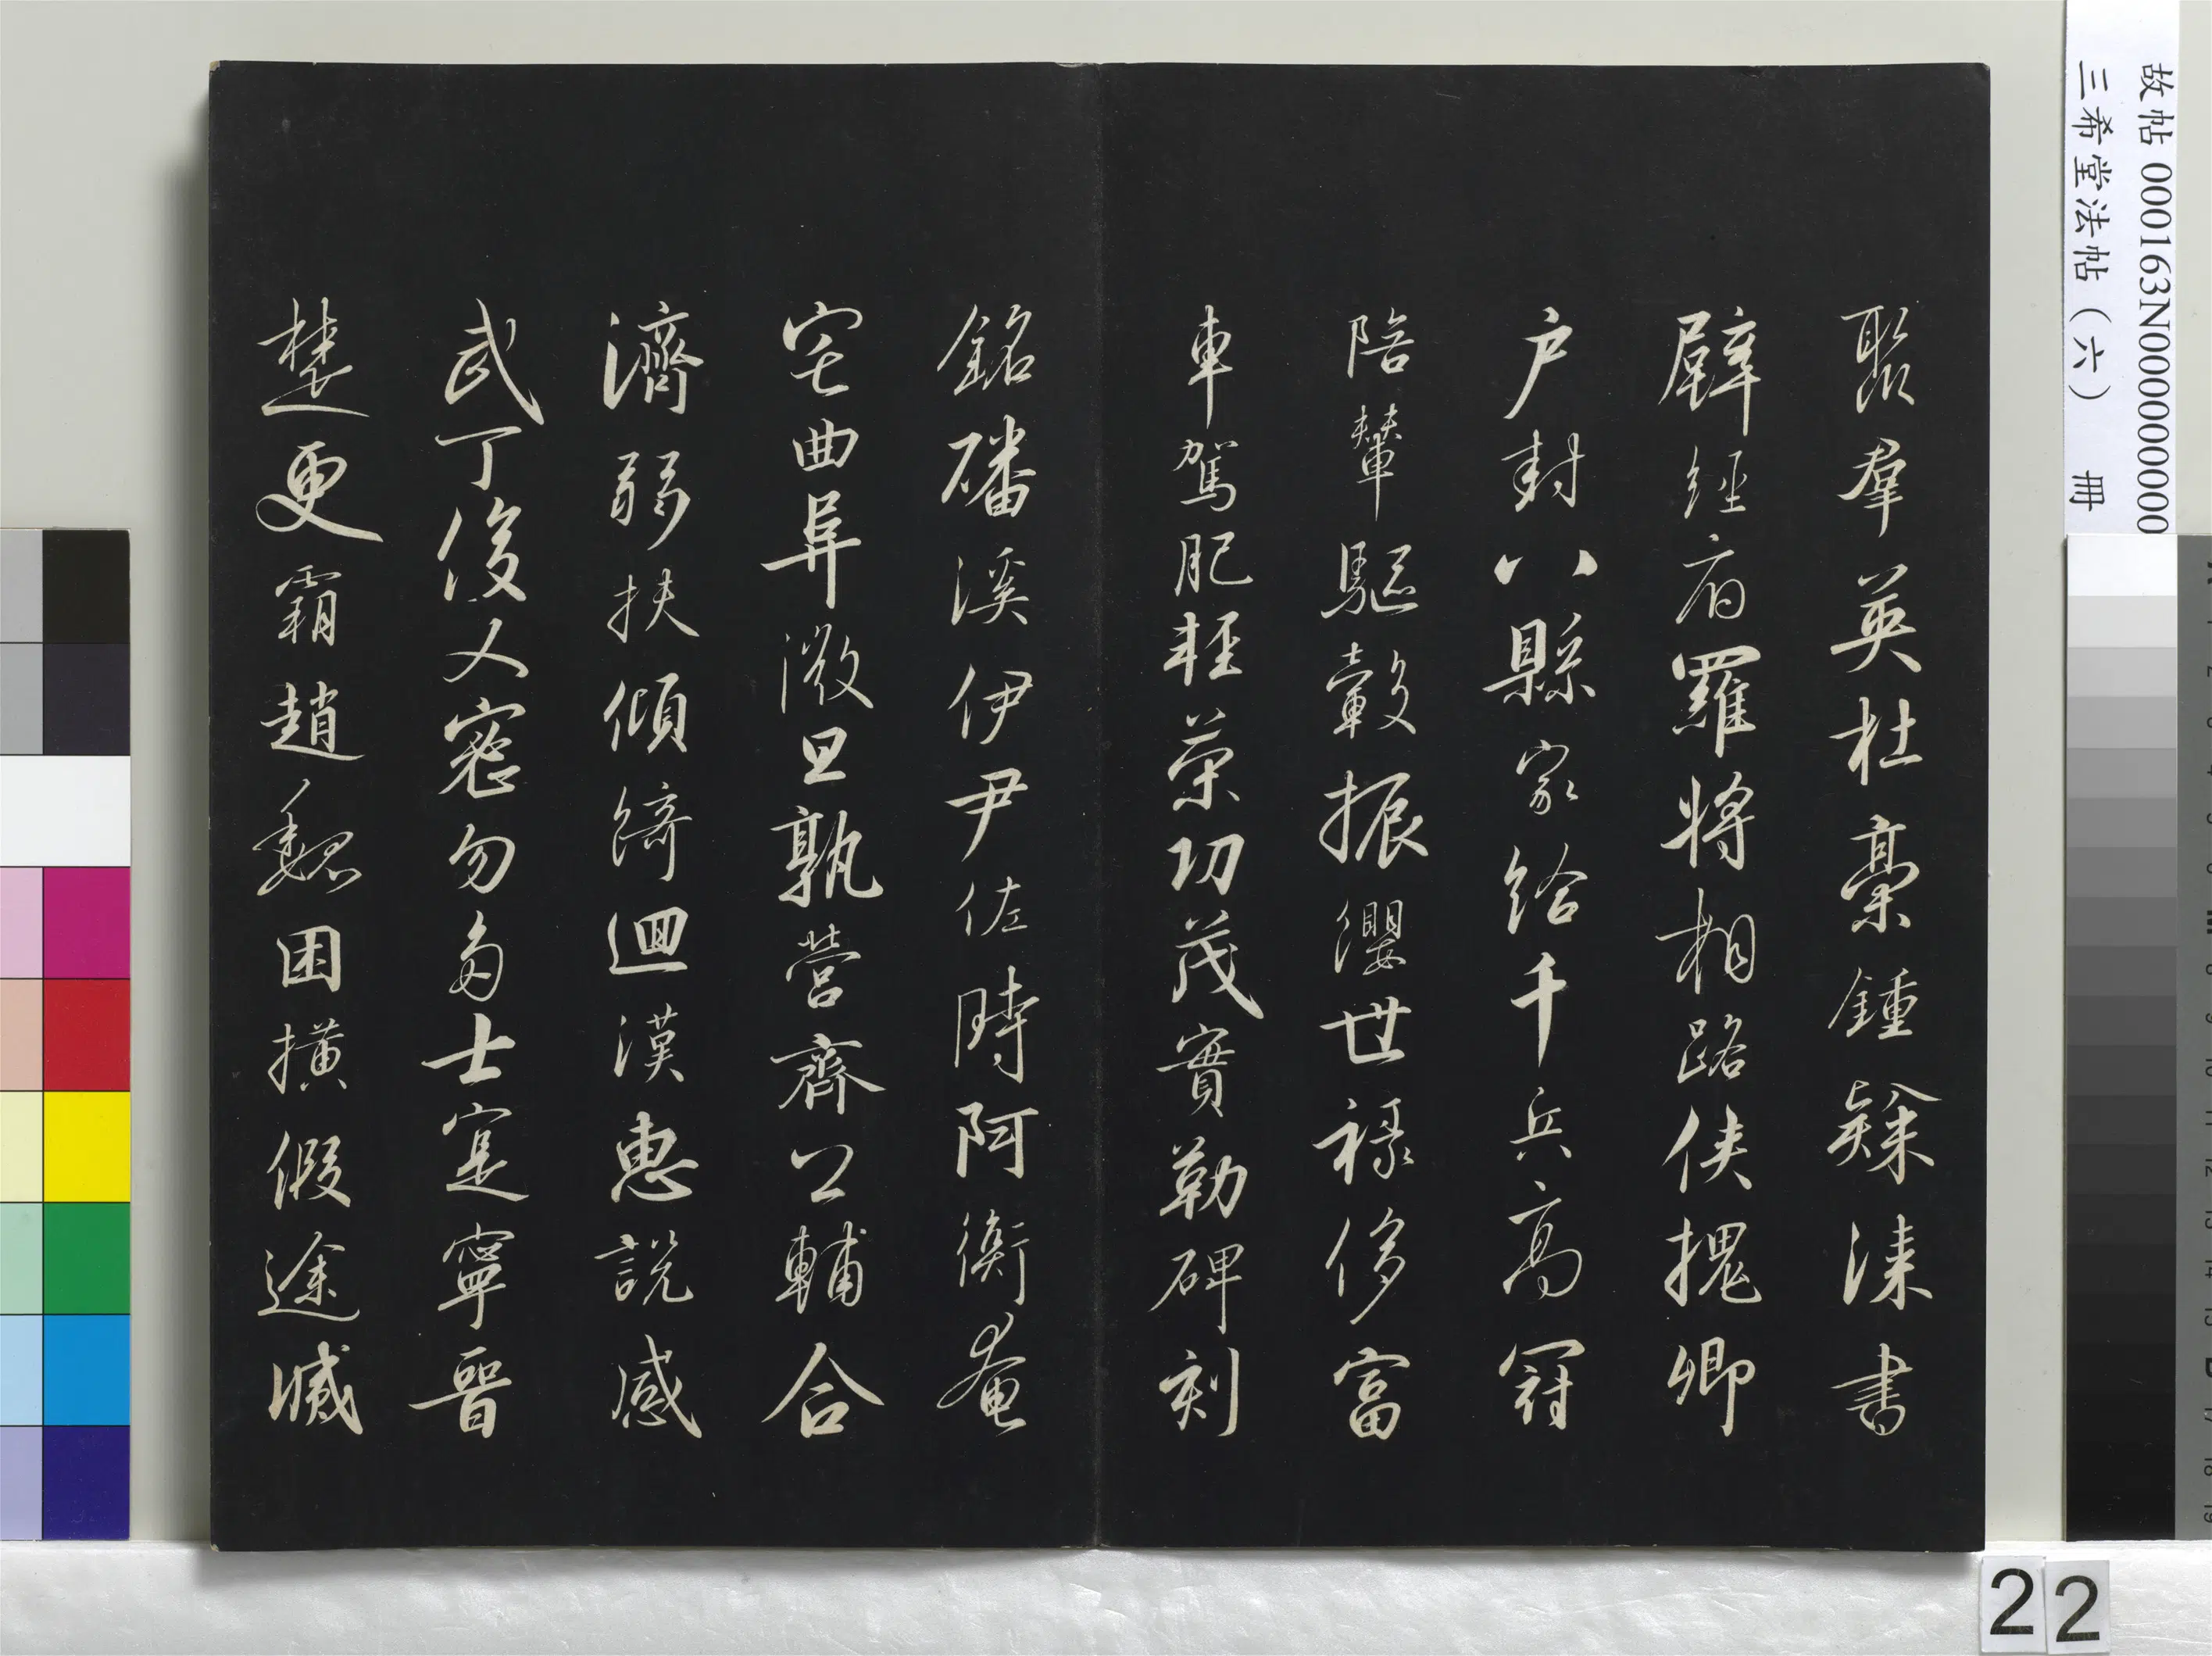 故帖 000163N000000000
三希堂法帖（六） 冊
聚羣英杜稾鍾隸漆書
壁經府羅將相路俠槐卿
户封八縣家給千兵高冠
陪輦驅轂振纓世祿侈富
車駕肥輕策功茂實勒碑刻
銘磻溪伊尹佐時阿衡奄
宅曲阜微旦孰營齊公輔合
濟弱扶傾綺迴漢惠說感
武丁俊乂密勿多士寔寧晉
楚更霸趙魏困橫假途滅
22